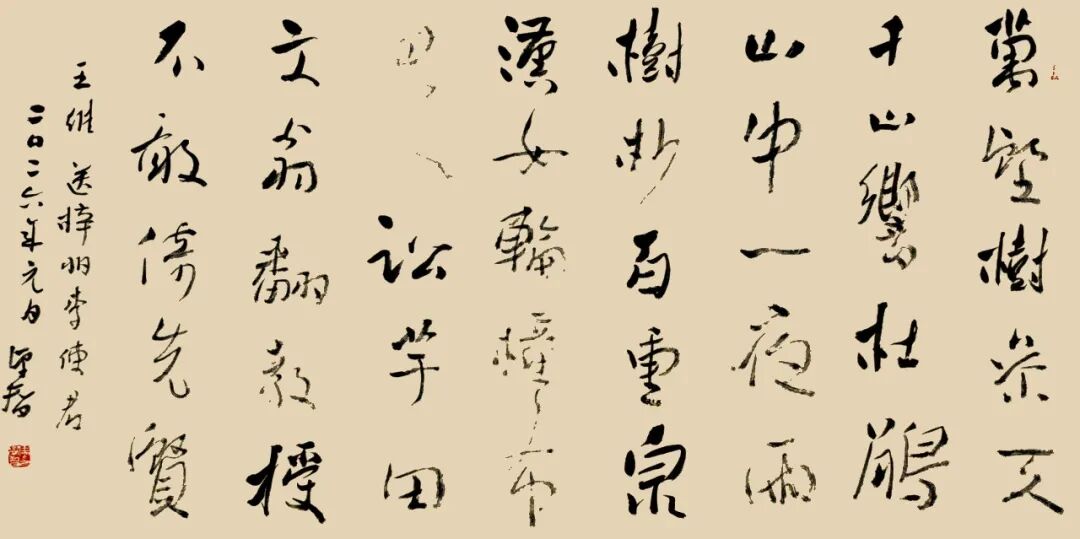 萬壑樹參天
千山響杜鵑
山中一夜雨
樹杪百重泉
漢女輸橦布
巴人訟芋田
文翁翻教授
不敢倚先賢
王維 送梓州李使君
二〇二六年元月